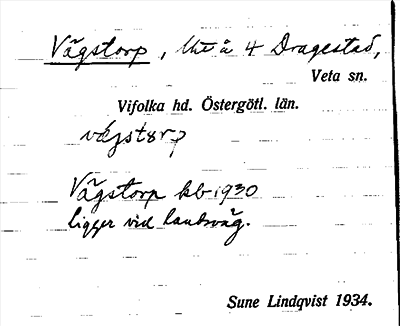 Vägstorp, lht å 4 Dragestad,
Veta sn.
Vifolka hd. Östergötl. län.
vägstorp
Vägstorp kb 1930
ligger vid landsväg.
Sune Lindqvist 1934.